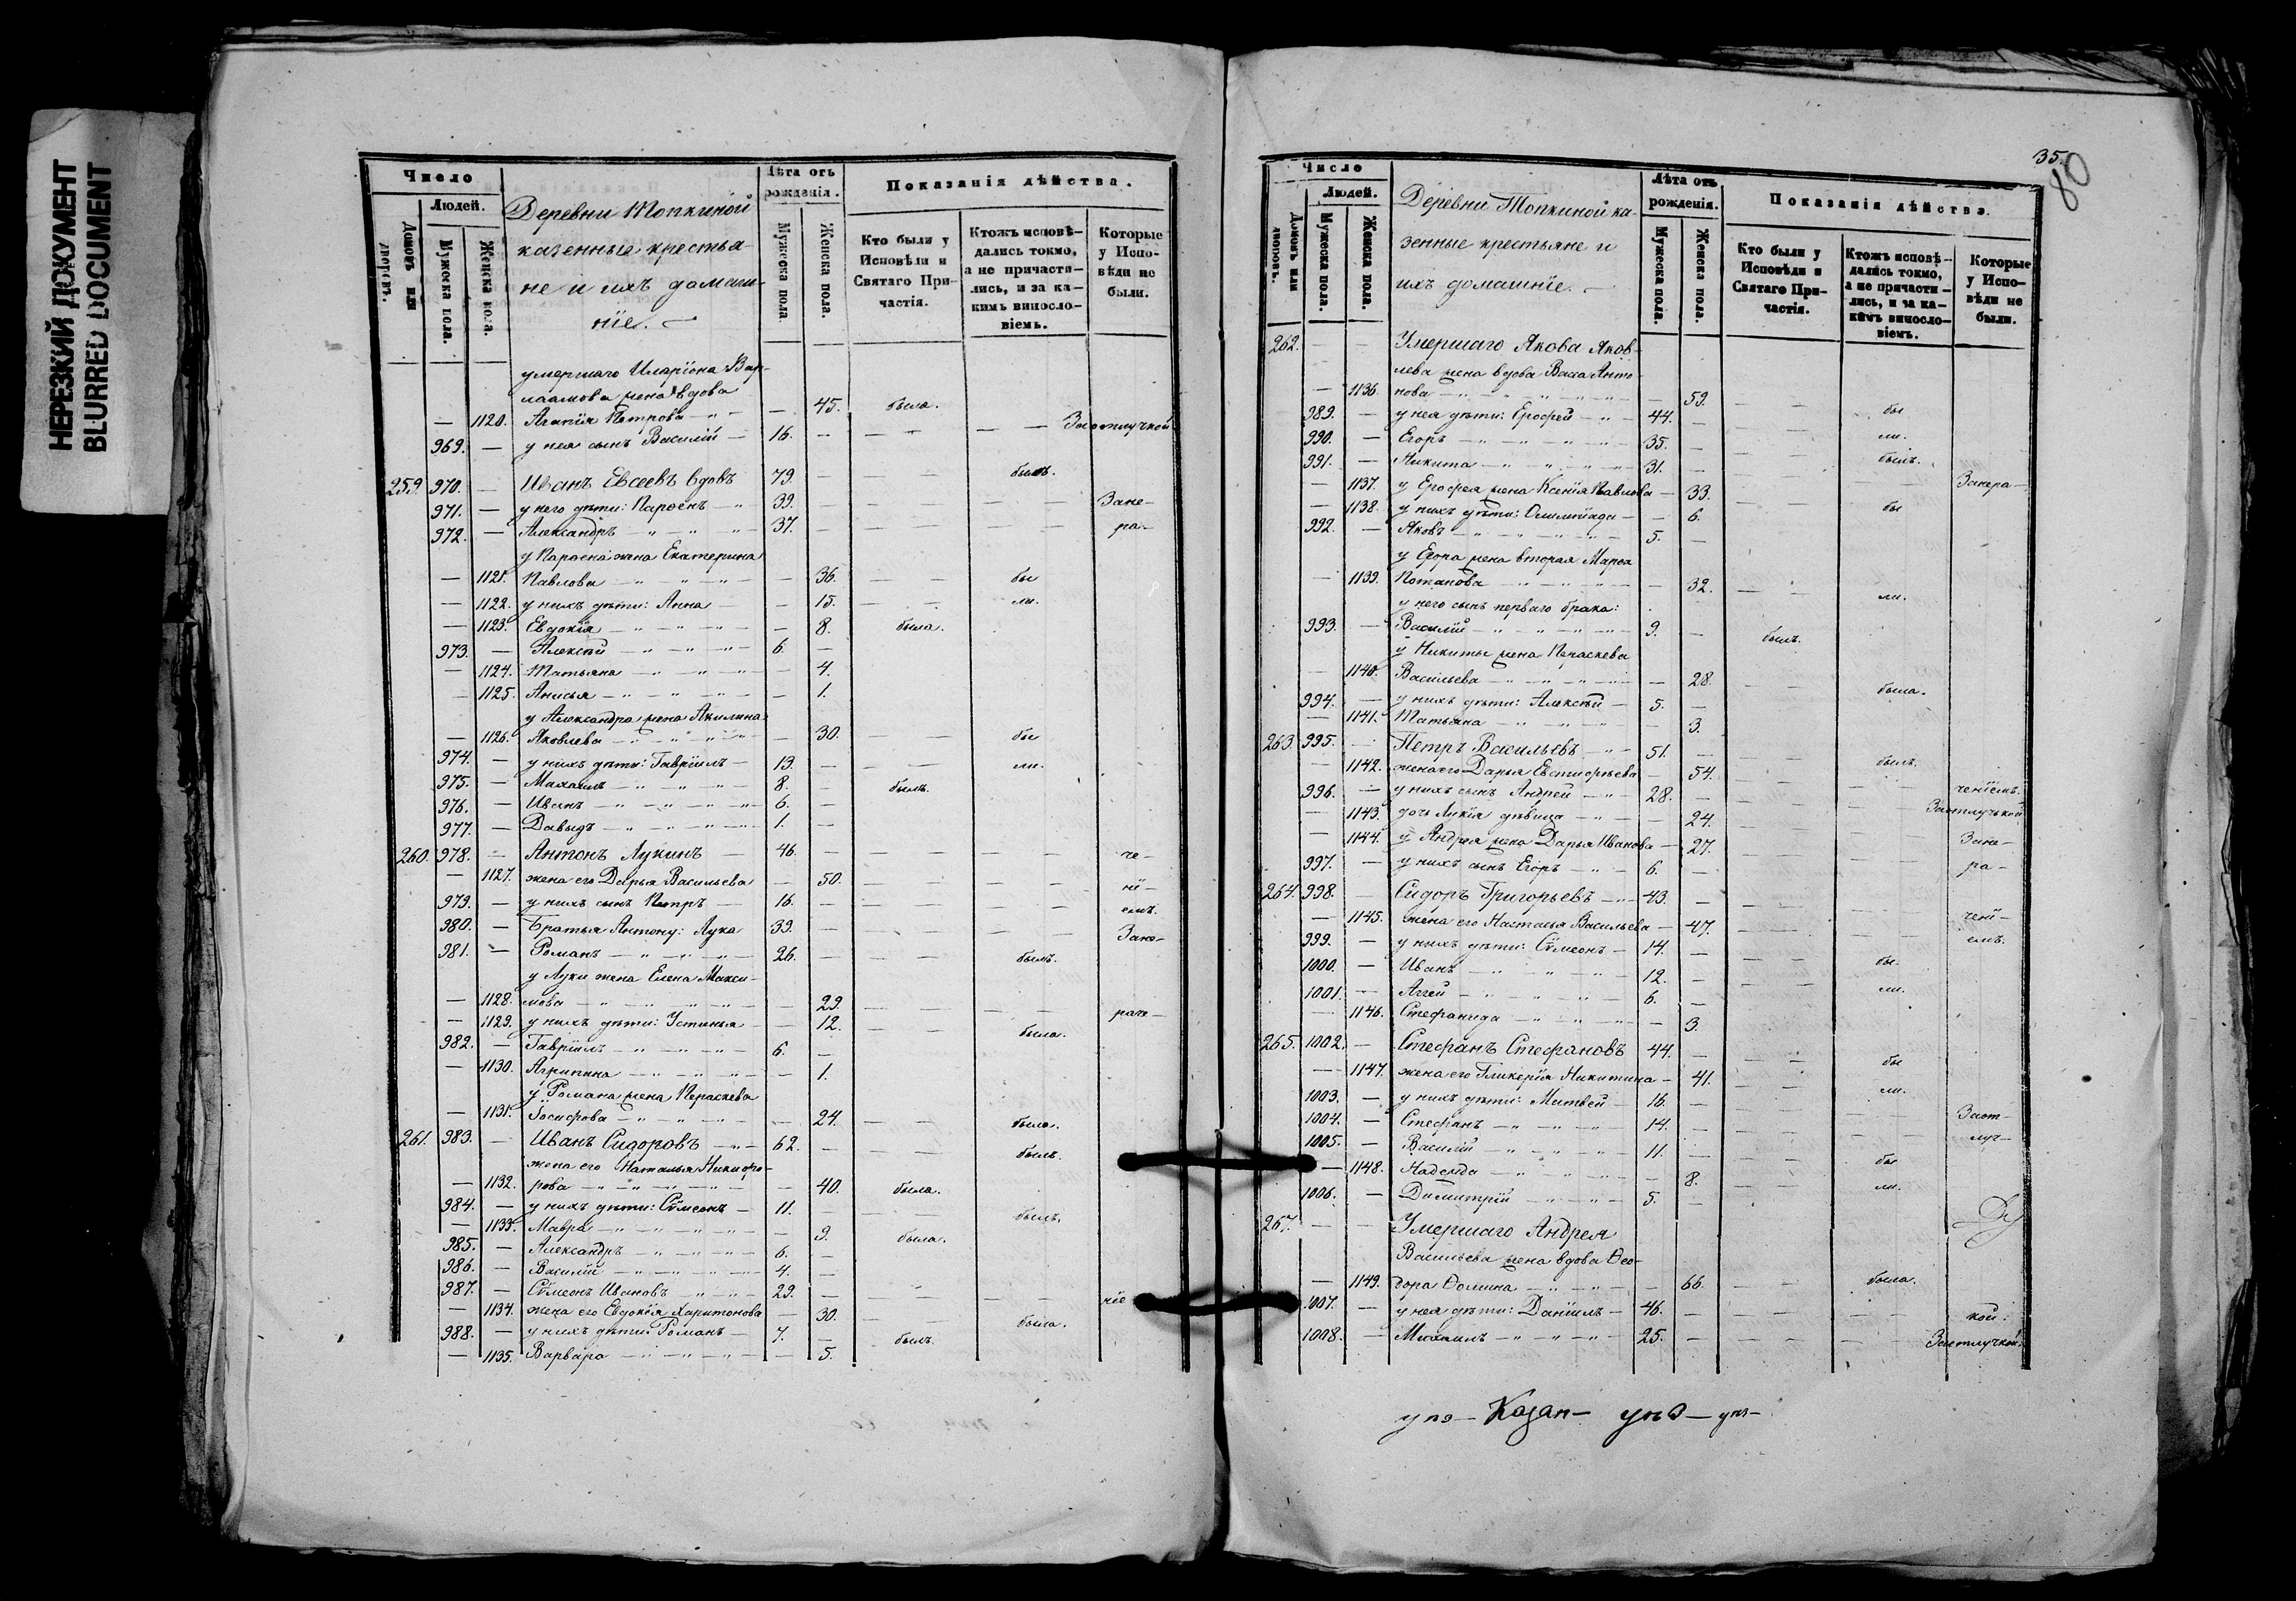 НЕРЕЗКИЙ ДОКУМЕНТ
BLURRED DOCUMENT
Число
Людей.
Домовъ или дворовъ.
Мужеска пола.
Женска пола.
Деревни Топкиной
казенные крестья-
не и ихъ домаш-
нїе.
Лѣта отъ рожденія.
Мужеска пола.
Женска пола.
Показанія дѣйства.
Кто были у Исповѣди и Святаго При-частія.
Ктожъ исповѣ-дались токмо, а не причасти-лись, и за ка-кимъ винослo-віемъ.
Которые у Испо-вѣди не были.
умершаго Иларїона Вар-
лаамова жена вдова
— 1120. Агапїя Петрова — 45. была.
969. — у нея сынъ Василїй — 16. — — — Заотлучкой
259. 970. — Иванъ Евсеевъ вдовъ 79. — — былъ.
971. — у него дѣти: Парѳенъ 39. — — — Зане-
972. — Александръ 37. — — — ра-
у Парѳена жена Екатерина
— 1121. Павлова — 36. — — бы
— 1122. у нихъ дѣти: Анна — 15. — — ли.
— 1123. Евдокїя — 8. была.
973. — Алексѣй 6. —
— 1124. Татьяна — 4.
— 1125. Анисья — 1.
у Александра жена Акилина
— 1126. Яковлева — 30. — — бы
974. — у нихъ дѣти: Гаврїилъ — 13. — — ли.
975. — Михаилъ 8. — былъ.
976. — Иванъ 6. —
977. — Давыдъ 1. —
260. 978. — Антонъ Лукинъ — 46. — — — че-
— 1127. жена его Дарья Васильева — 50. — — — нї-
979. — у нихъ сынъ Петръ — 16. — — — емъ.
980. — Братья Антону: Лука 39. — — — Зане-
981. — Романъ 26. — — былъ.
у Луки жена Елена Макси-
— 1128. мова — 29. — — — раче-
— 1129. у нихъ дѣти: Устинья — 12. — — была.
982. — Гаврїилъ 6. —
— 1130. Агрипина — 1.
у Романа жена Параскева
— 1131. Їосифова — 24. — — была.
261. 983. — Иванъ Сидоровъ 62. — — былъ.
жена его Наталья Никифо-
— 1132. рова — 40. была.
984. — у нихъ дѣти: Сѵмеонъ — 11. — — былъ.
— 1133. Мавра — 9. была.
985. — Александръ 6. —
986. — Василїй 4. —
987. — Сѵмеонъ Ивановъ 29. — — — нїе
— 1134. жена его Евдокїя Харитонова — 30. — была.
988. — у нихъ дѣти: Романъ — 7. — былъ.
— 1135. Варвара — 5.
35.
80
Число
Людей.
Домовъ или дворовъ.
Мужеска пола.
Женска пола.
Деревни Топкиной ка-
зенные крестьяне и
ихъ домашнїе.
Лѣта отъ рожденія.
Мужеска пола.
Женска пола.
Показанія дѣйства.
Кто были у Исповѣди и Святаго При-частія.
Ктожъ исповѣ-дались токмо, а не причасти-лись, и за ка-кимъ винослo-віемъ.
Которые у Испо-вѣди не были.
262. — — Умершаго Якова Яков-
лева жена вдова Васса Анто-
— 1136. нова — 59. — — бы
989. — у нея дѣти: Ерофей 44. — — — ли.
990. — Егоръ 35. — — — былъ.
991. — Никита 31. — — — Занера-
— 1137. у Ерофея жена Ксенїя Павлова — 33. — — бы
— 1138. у нихъ дѣти: Олимпїада — 6.
992. — Яковъ 5. —
у Егора жена вторая Марѳа
— 1139. Потапова — 32. — — ли.
у него сынъ перваго брака:
993. — Василїй 9. — былъ.
у Никиты жена Параскева
— 1140. Васильева — 28. — — была.
994. — у нихъ дѣти: Алексѣй — 5. —
— 1141. Татьяна — 3.
263. 995. — Петръ Васильевъ 51. — — былъ.
— 1142. жена его Дарья Евстифѣева — 54. — — ченїемъ.
996. — у нихъ сынъ Андрей 28. — — — Заотлучькой
— 1143. дочь Лукїя дѣвица — 24. — — — Зане-
— 1144. у Андрея жена Дарья Иванова — 27. — — — ра-
997. — у нихъ сынъ Егоръ 6. —
264. 998. — Сидоръ Григорьевъ 43. — — — ченї-
— 1145. жена его Настасья Васильева — 47. — — — емъ.
999. — у нихъ дѣти: Сѵмеонъ — 14. — — бы.
1000. — Иванъ 12. — — ли.
1001. — Аггей 6. —
— 1146. Стефанида — 3.
265. 1002. — Стефанъ Стефановъ 44. — — бы
— 1147. жена его Гликерїя Никитина — 41. — — ли.
1003. — у нихъ дѣти: Матвей 16. — — — Заот-
1004. — Стефанъ 14. — — — луч-
1005. — Василїй 11. — — бы
— 1148. Надежда — 8. — — ли.
1006. — Димитрїй 5. —
267. — — Умершаго Андрея
Васильева жена вдова Ѳео-
— 1149. дора Ѳомина — 66. — — была.
1007. — у нея дѣти: Данїилъ — 46. — — — кой:
1008. — Михаилъ 25. — — — Заотлучкой.
Казан—